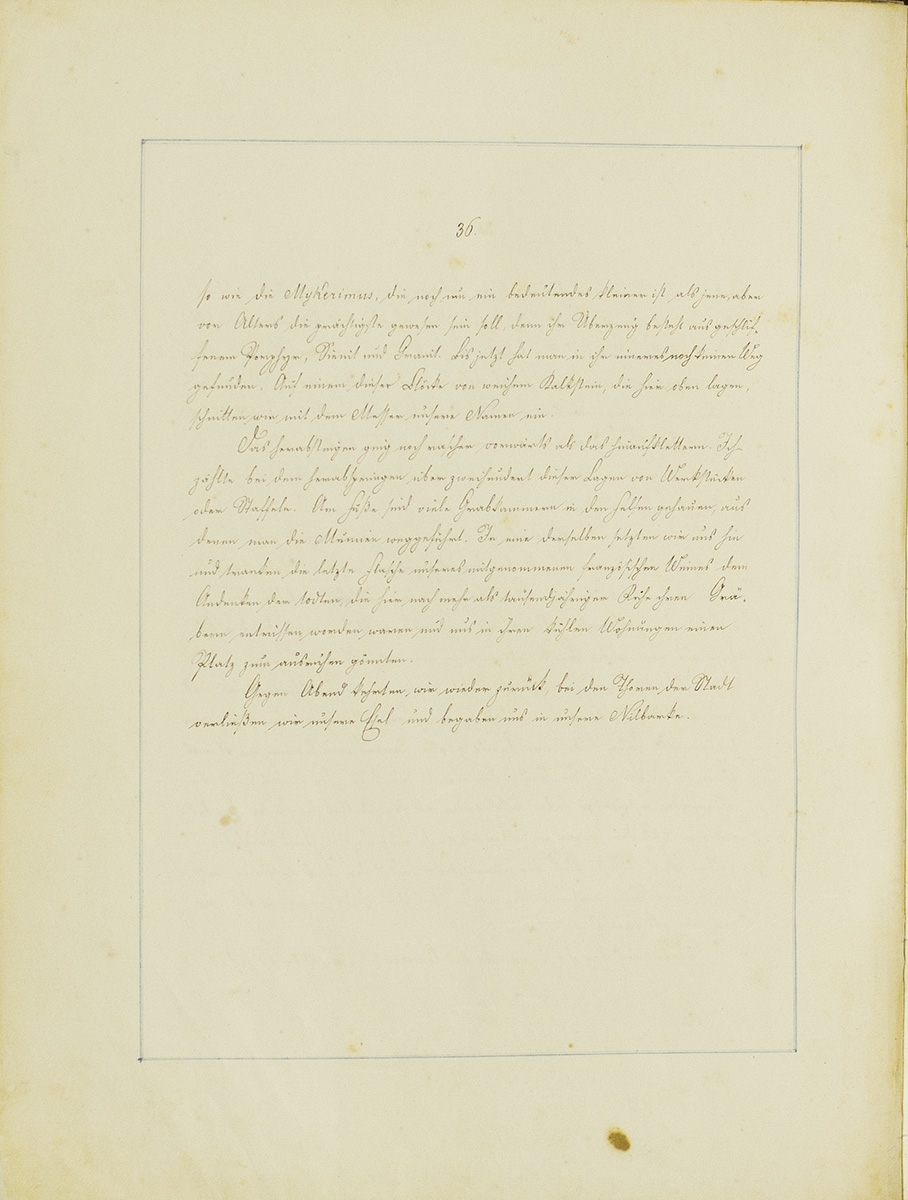 36.
so wie die Mykerimus, die noch um ein bedeutendes kleiner ist als jene, aber
von Alters die prächtigste gewesen sein soll, denn ihr Überzeug besteht aus geschlif-
fenem Porphyr, Sienit und Granit. Bis jetzt hat man in ihr inneres noch keinen Weg
gefunden. Auf einem dieser Blöcke von weichem Kalkstein, die hier oben lagen,
schnitten wir mit dem Messer unsere Namen ein.
Das herabsteigen ging noch rascher vorwärts als das hinaufklettern. Ich
zählte bei dem herabspringen über zweihundert dieser Lagen von Werkstücken
oder Staffeln. Am Fuße sind viele Grabkammern in den Felsen gehauen, aus
denen man die Mumien weggeführt. In eine derselben setzten wir uns hin
und tranken die letzte Flasche unseres mitgenommenen französischen Weines dem
Andenken der todten, die hier nach mehr als tausendjähriger Ruhe ihren Grä-
bern entrissen worden waren und uns in ihren kühlen Wohnungen einen
Platz zum ausruhen gönnten.
Gegen Abend kehrten wir wieder zurück, bei den Thoren der Stadt
verließen wir unsere Esel und begaben uns in unsere Nilbarke.